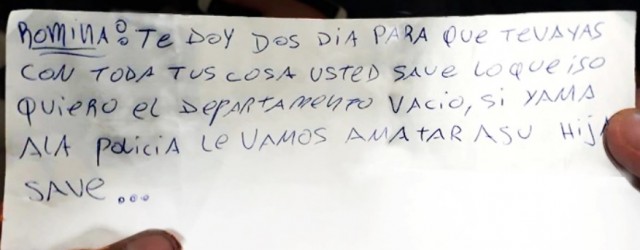 ROMINA: TE DOY DOS DIA PARA QUE TEVAYAS
CON TODA TUS COSA USTED SAVE LO QUE ISO
QUIERO EL DEPARTAMENTO VACIO, SI YAMA
ALA POLICIA LE VAMOS AMATAR ASU HIJA
SAVE...